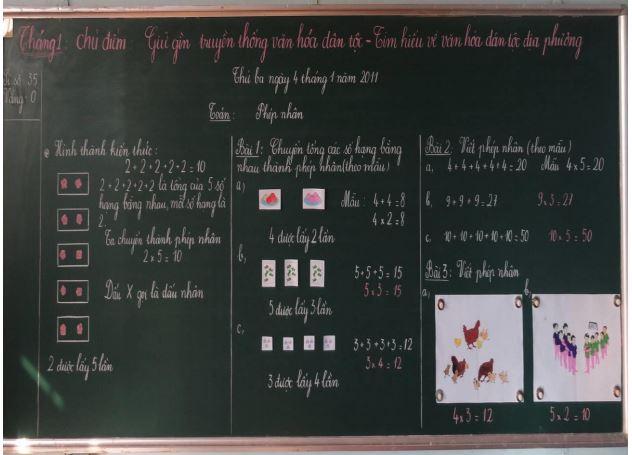 Tháng 1: Chủ điểm: Giữ gìn truyền thống văn hóa dân tộc - Tìm hiểu về văn hóa dân tộc địa phương
Sĩ số: 35
Vắng: 0
Thứ ba ngày 4 tháng 1 năm 2011
Toán: Phép nhân
Hình thành kiến thức:
2+2+2+2+2=10
2+2+2+2+2 là tổng của 5 số
hạng bằng nhau, mỗi số hạng là
2.
Ta chuyển thành phép nhân
2 x 5 = 10
Dấu X gọi là dấu nhân
2 được lấy 5 lần
Bài 1: Chuyển tổng các số hạng bằng
nhau thành phép nhân (theo mẫu)
a)
Mẫu: 4+4=8
4 x 2=8
4 được lấy 2 lần
b,
5+5+5=15
5 x 3 = 15
5 được lấy 3 lần
c,
3+3+3+3=12
3 x 4 = 12
3 được lấy 4 lần
Bài 2: Viết phép nhân (theo mẫu)
a, 4+4+4+4+4=20 Mẫu 4x5=20
b, 9+9+9=27 9 x 3=27
c, 10+10+10+10+10=50 10 x 5 = 50
Bài 3: Viết phép nhân
a,
b,
4 x 3 = 12
5 x 2 = 10